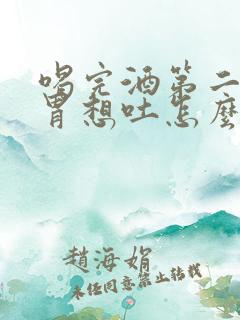 喝完酒第二
胃想吐怎麼
趙海娟
未经同意禁止转载